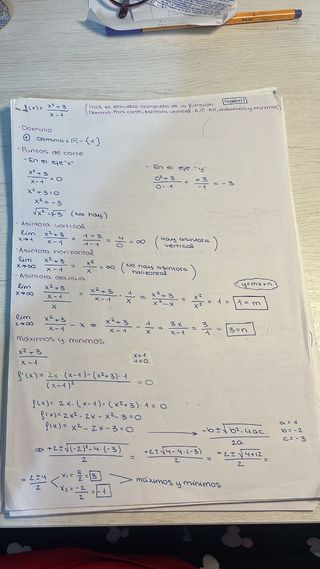 f(x)= x²+3 / x-1 (Haz el estudio completo de la función
(Dominio, Ptos corte, Asíntota vertical, máximos y mínimos)
· Dominio
① Dominio = ℝ - {1}
· Puntos de corte
- En el eje "x"
x²+3 / x-1 = 0
x²+3 = 0
x² = -3
√x² = √-3 (No hay)
- En el eje "y"
0²+3 / 0-1 = +3 / -1 = -3
· Asíntota vertical
lim x→1 x²+3 / x-1 = 1+3 / 1-1 = 4 / 0 = ∞ (Hay asíntota vertical)
· Asíntota horizontal
lim x→∞ x²+3 / x-1 = x² / x = ∞ (No hay asíntota horizontal)
· Asíntota oblicua
y=mx+n
lim x→∞ x²+3 / x-1 / x = x²+3 / x-1 · 1 / x = x²+3 / x²-x = x² / x² = 1 = 1=m
lim x→∞ x²+3 / x-1 - x ⇒ x²+3 / x-1 - 1 / x = 3x / x-1 = 3 / 1 = 3=n
Máximos y mínimos
x²+3 / x-1
x=1
1=0
f'(x) = 2x·(x-1)-(x²+3)·1 / (x-1)² = 0
f(x) = 2x·(x-1)-(x²+3)·1 = 0
f(x) = 2x²-2x-x²-3=0
f(x) = x²-2x-3=0
-b±√b²-4ac / 2a
a = 1
b = -2
c = -3
⇒ +2±√(-2)²-4·(-3) / 2 = +2±√4-4·(-3) / 2 = +2±√4+12 / 2 =
= 2±4 / 2
x₁ = 6 / 2 = 3
x₂ = -2 / 2 = -1
máximos y mínimos